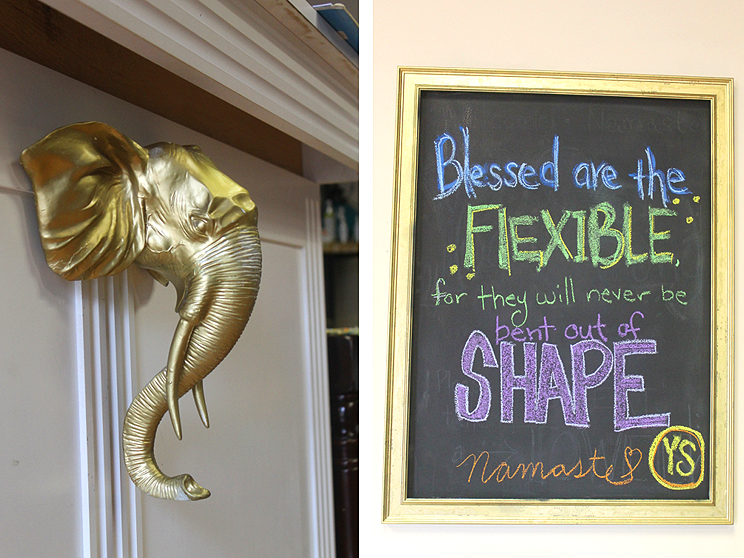 Blessed are the
FLEXIBLE,
for they will never be
bent out of
SHAPE
Namaste
YS